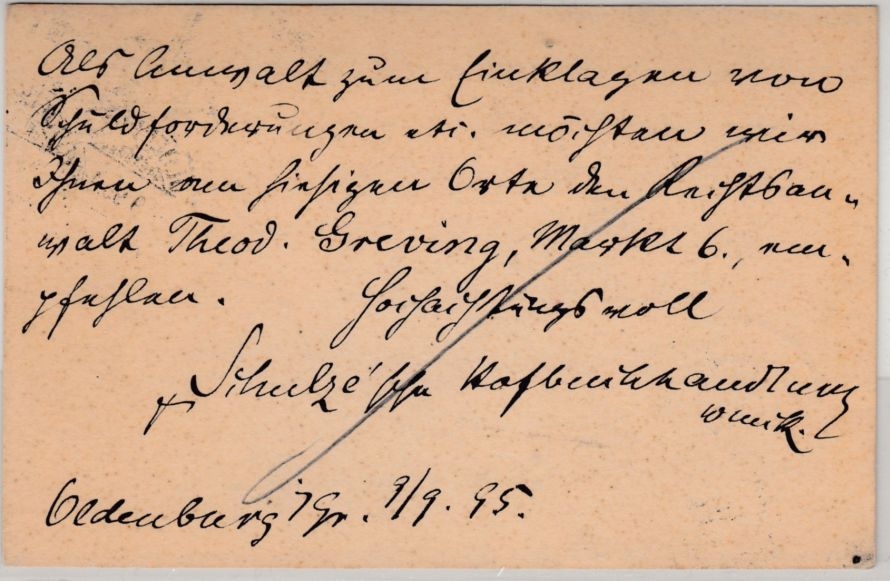 Als Anwalt zum Einklagen von
Schuldforderungen etc. möchten wir
Ihnen am hiesigen Orte den Rechtsan-
walt Theod. Greving, Markt 6., em-
pfehlen. Hochachtungsvoll
Schulze'sche Hofbuchhandlung
Oldenburg i/Gr. 9/9. 95.